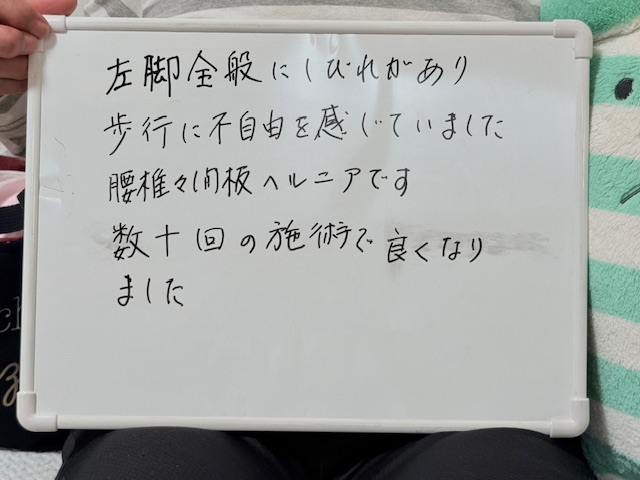 左脚全般にしびれがあり
歩行に不自由を感じていました
腰椎々間板ヘルニアです
数十回の施術で良くなり
ました